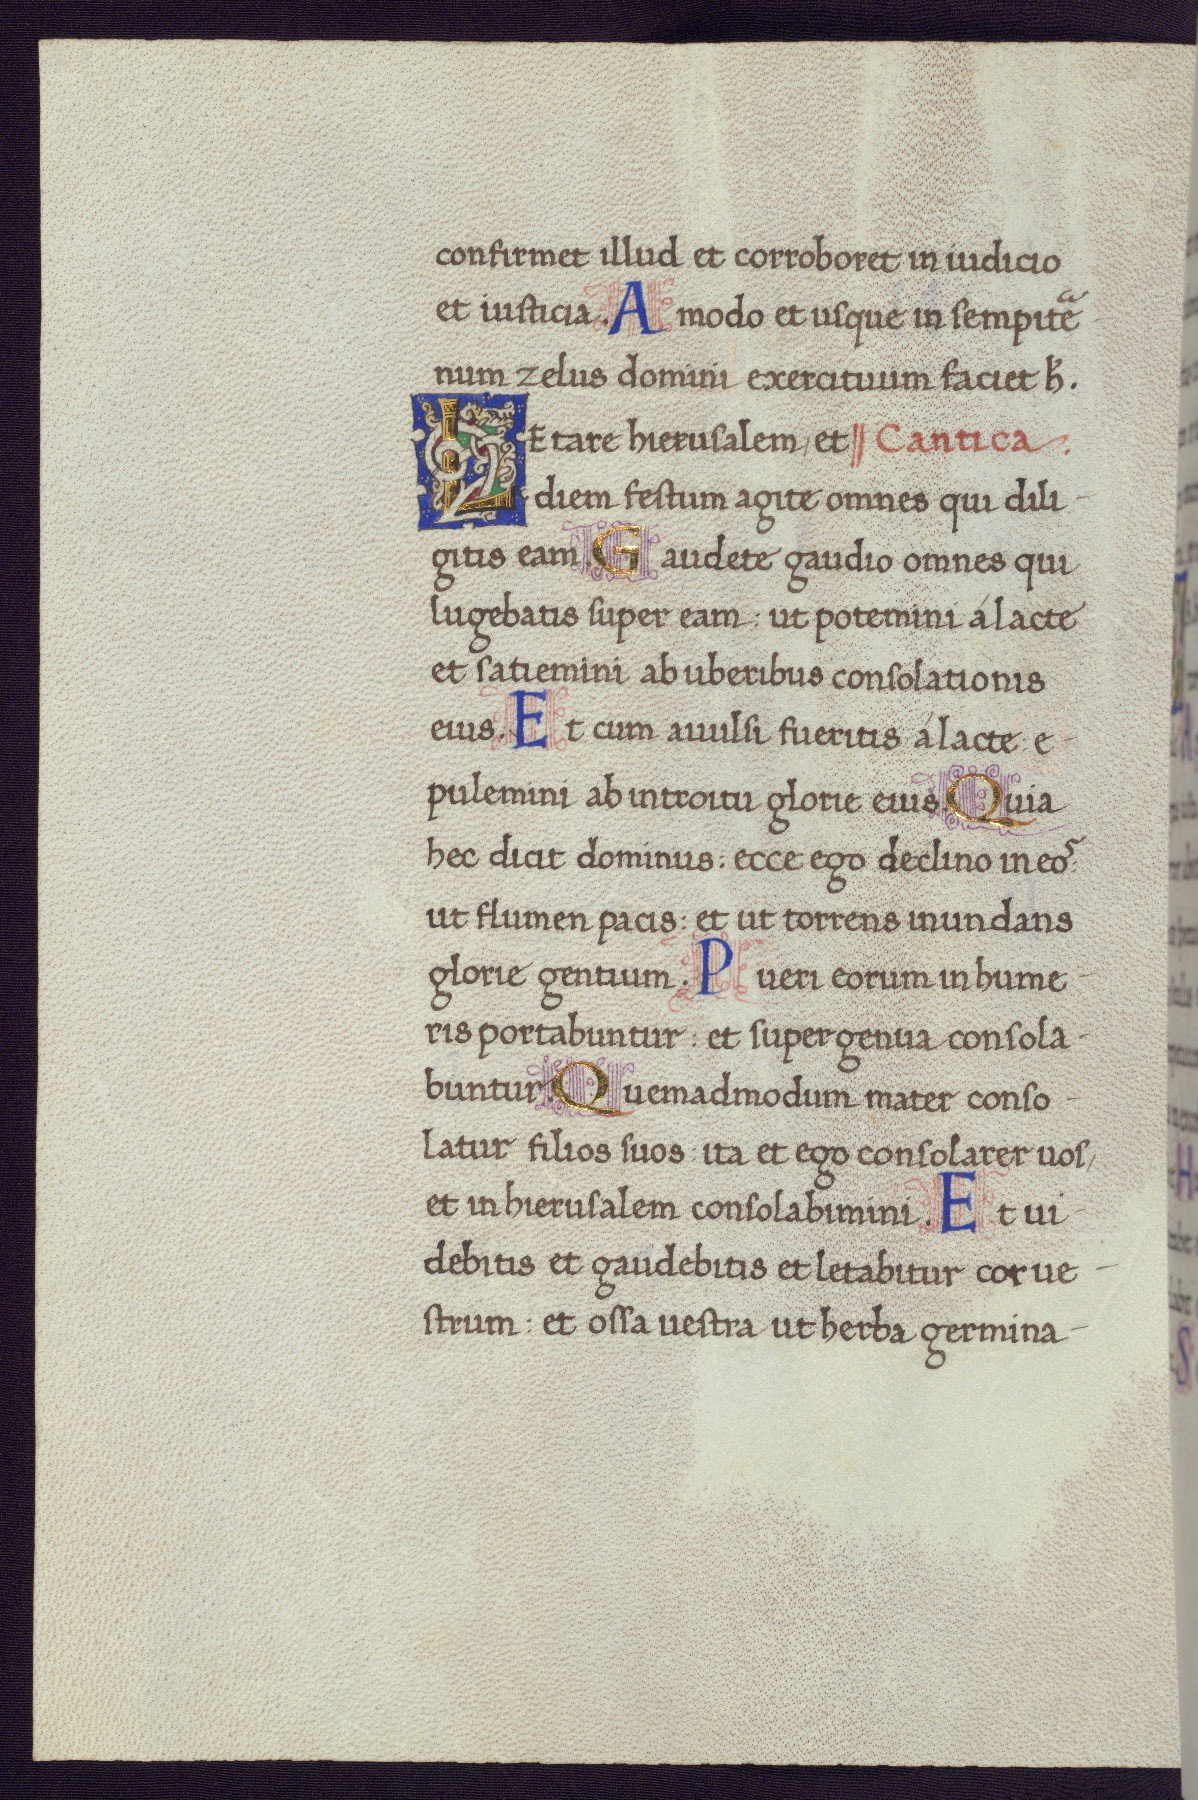 confirmet illud et corroboret in iudicio
et iusticia. A modo et usque in sempitē
num zelus domini exercituum faciet h̄.
LEtare hierusalem, et Cantica.
diem festum agite omnes qui dili-
gitis eam. Gaudete gaudio omnes qui
lugebatis super eam: ut potemini á lacte
et satiemini ab uberibus consolationis
eius. Et cum auulsi fueritis á lacte: e-
pulemini ab introitu glorie eius. Quia
hec dicit dominus: ecce ego declino in eos
ut flumen pacis: et ut torrens inundans
glorie gentium. Pueri eorum in hume-
ris portabuntur: et super genua consola-
buntur. Quemadmodum mater conso-
latur filios suos: ita et ego consolarer uos,
et in hierusalem consolabimini. Et ui-
debitis et gaudebitis et letabitur cor ue-
strum: et ossa uestra ut herba germina-